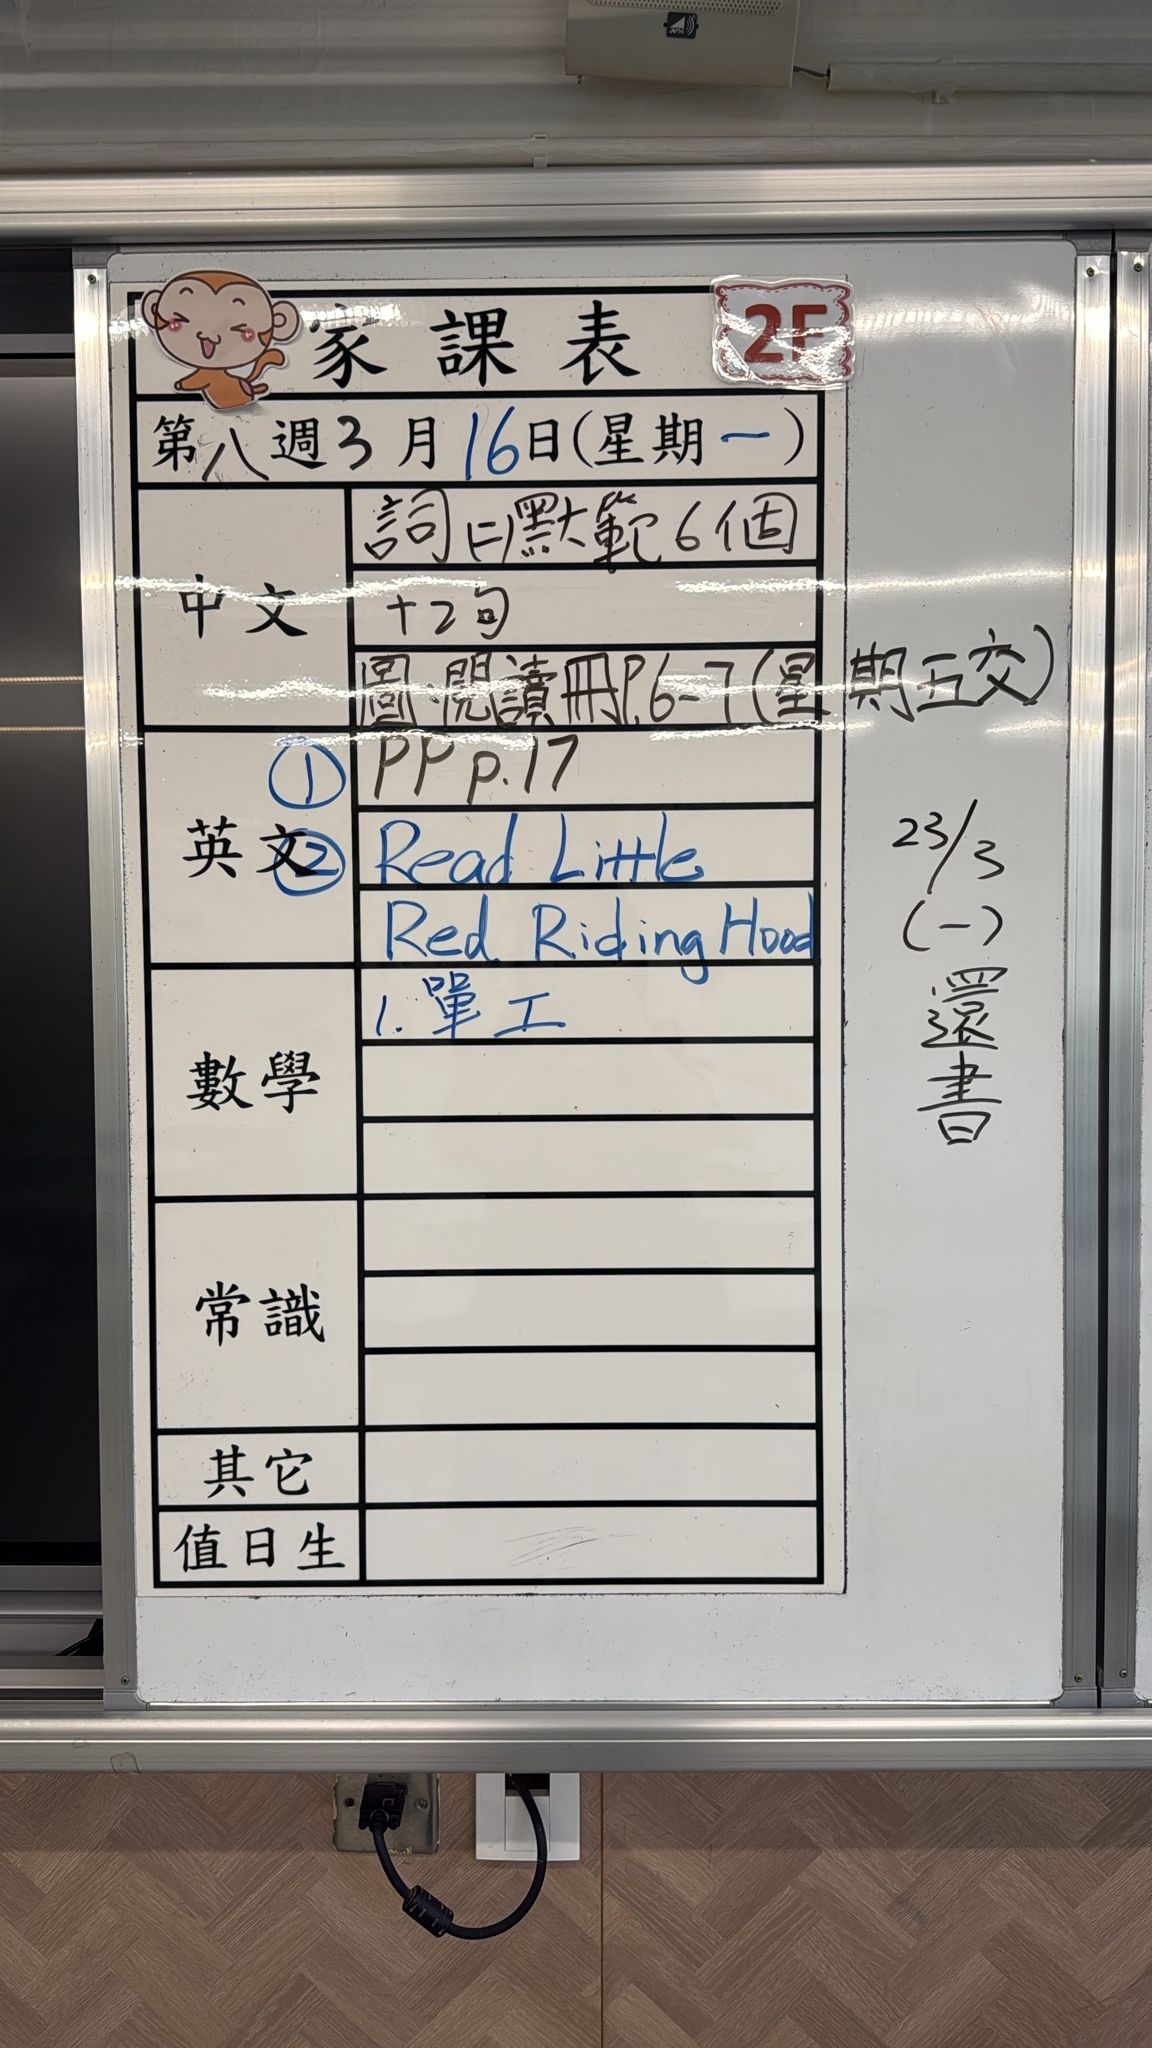 家課表
2F
第八週3月16日(星期一)
中文
詞(二)默範6個
+2句
圖:閱讀冊P.6-7(星期五交)
英文
① PP p.17
② Read Little
Red Riding Hood
數學
1. 單工
常識
其它
值日生
23/3
(一)
還書